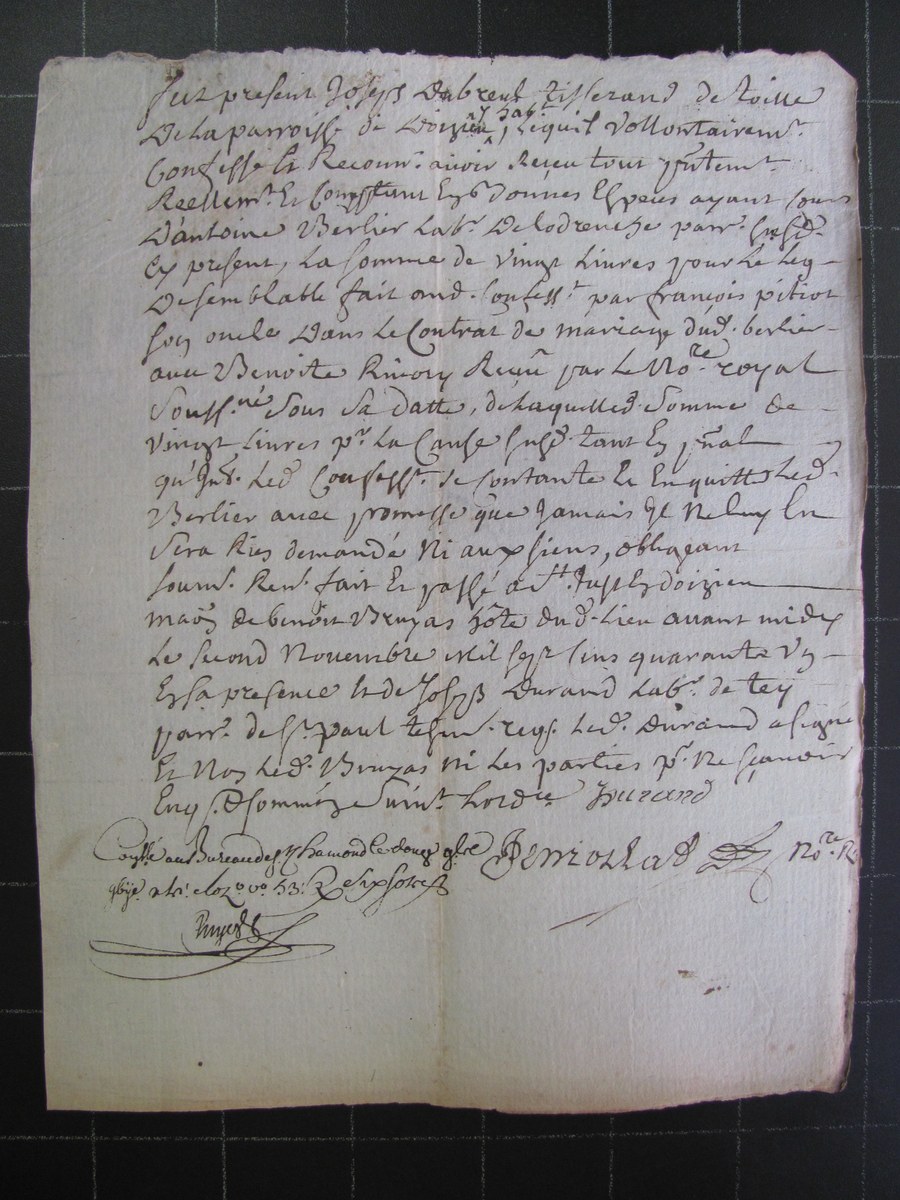 fut present Joseph Dubreul tisserand de toille
De la parroisse de Doizieu, y hab.t lequel vollontairem.t
Confesse Et Reconn.t avoir Receu tout p̃ntem.t
Reellem.t Et Comptant En bonnes Especes ayant cours
D'antoine Berlier Lab.r De parr. susd.
Cy present, La somme de vingt Livres pour Le Leg
De semblable fait aud. Confess.t par françois pitiot
son oncle Dans Le Contrat de mariage dud. berlier
avec Benoite Rivory Receu par Le No.re royal
Souss.né Sous Sa datte, de Laquelle d. Somme de
vingt Livres p.r La Cause susd. tant En p̃nal
qu'Int. Led. Confess.t se contante Et En quitte Led.
Berlier avec promesse que Jamais Il Ne luy En
sera Rien demandé Ni aux siens, obligeant
soum.t Ren.t fait Et passé a S.t Just En doizieu
mais de benoit Bruyas hôte dud. Lieu avant midy
Le second Novembre mil sept cens quarante un
En sa presence Et de Joseph Durand Lab.r de
parr. de S.t paul Led. Durand a signé
Et Non Led. Bruyas Ni Les parties p.r Ne sçavoir
Enq. & sommés Suiv.t Lordce Durand
Conllé au Bureau de S.t Chamond le douze 9bre
vo. 53. R. six sols
No.re R.